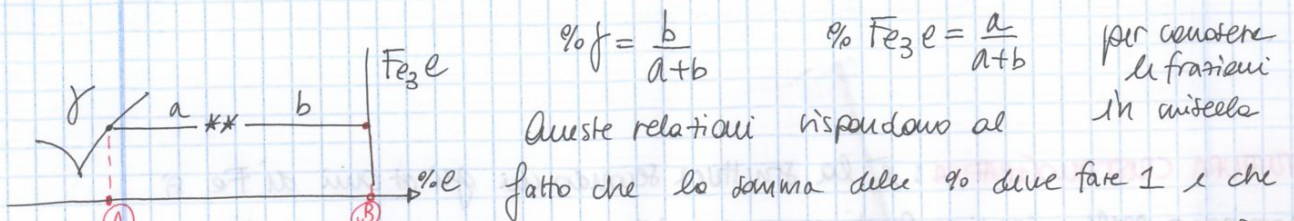 %γ = b/(a+b)   % Fe3C = a/(a+b)   per conoscere
le frazioni
in miscela
Fe3C
γ   a   **   b
Queste relazioni rispondono al
%C
fatto che la somma delle % deve fare 1 e che
A   B